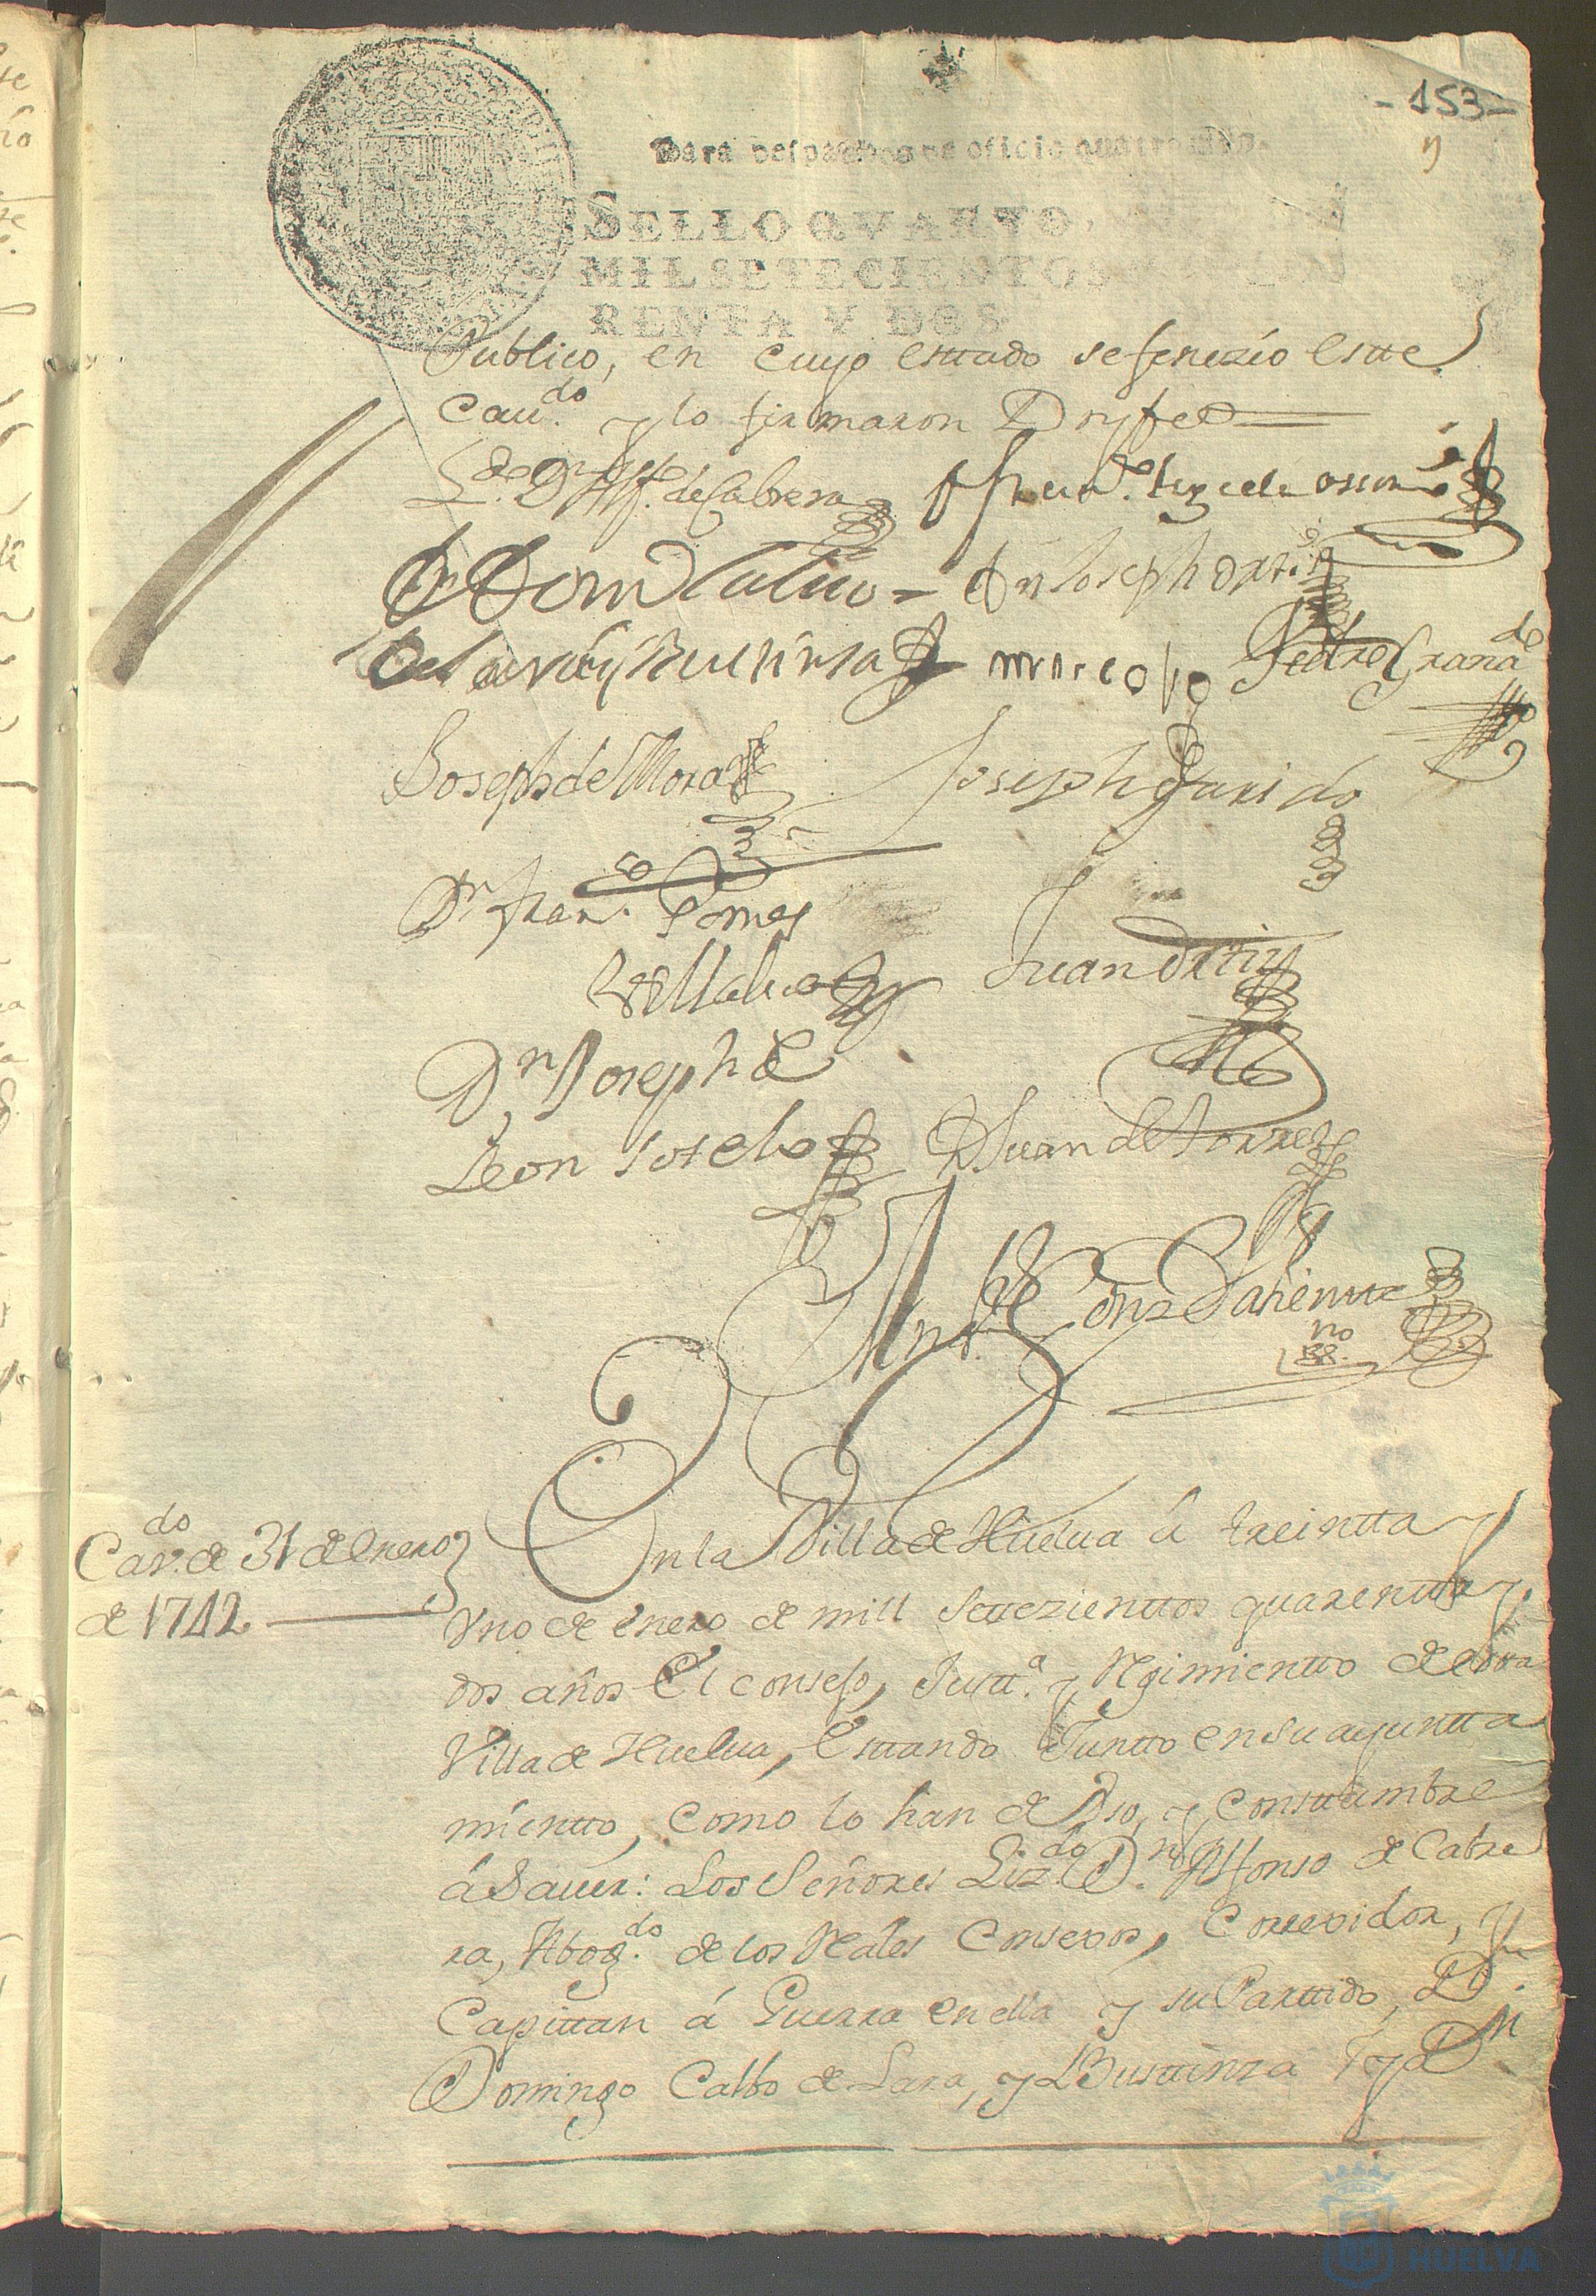 - 153 -
Para despachos de oficio quatro mrs.
SELLO QVARTO,
MIL SETECIENTOS
RENTA Y DOS
Publico, en cuyo esttado se feneziò estte
Cau.do y lo firmaron Doy fee
L.do Dn Alf.o de Cabrera
Dn Dom Calvo = Dn Joseph Ortiz
De Lara y Bustinsa Pedro Granado
Joseph de Mora Joseph Garrido
Dn Fran.co Gomez
Villalva Juan Ortiz
Dn Joseph de
Leon Sotelo Juan de Torres
Cav.do de 31 de Enero
de 1742
En la Villa de Huelua â treintta y
Vno de enero de mill settezienttos quarentta y
dos años El consejo, Justt.a y Rgimientto de estta
Villa de Huelua, Esttando Juntto en su ayuntta
mientto, como lo han de Vso, y Consttumbre
â Sauer: Los Señores Liz.do Dn. Alfonso de Cabre
ra, Abog.do de los Rales Consexos, Correxidor, y
Capittan â Guerra en ella y su Parttido, Dn.
Domingo Calbo de Lara, y Busttinza Dn
HUELVA